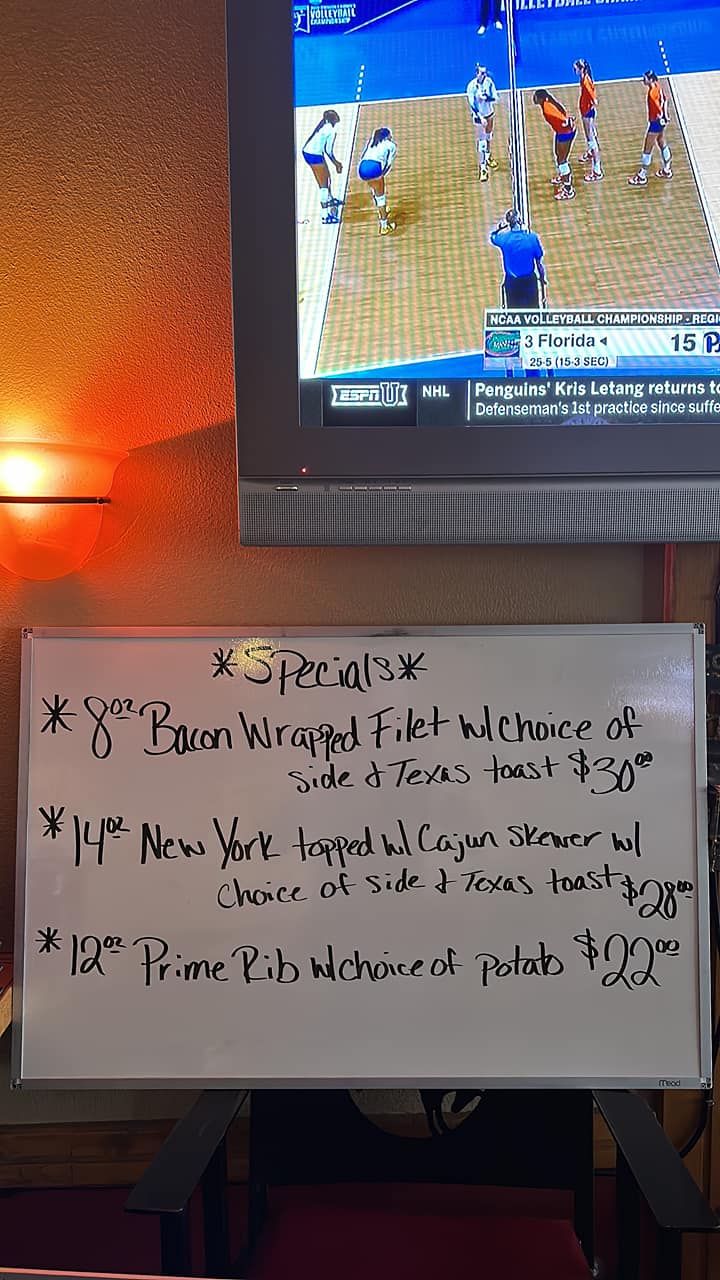 VOLLEYBALL
CHAMPIONSHIP
NCAA VOLLEYBALL CHAMPIONSHIP - REGI
3 Florida 15 P
25-5 (15-3 SEC)
ESPNU NHL Penguins' Kris Letang returns to
Defenseman's 1st practice since suffe
*Specials*
*8oz Bacon Wrapped Filet w/choice of
side & Texas toast $30.00
*14oz New York topped w/ Cajun Skewer w/
Choice of side & Texas toast $28.00
*12oz Prime Rib w/choice of potato $22.00
Mead